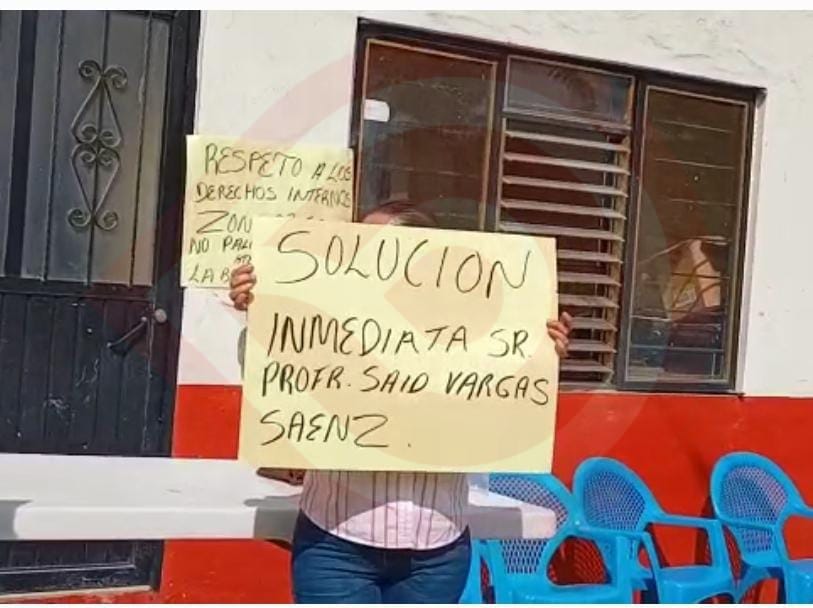 RESPETO A LOS
DERECHOS INTERNOS
ZON
NO PAL
LAB
SOLUCION
INMEDIATA SR.
PROFR. SAID VARGAS
SAENZ.